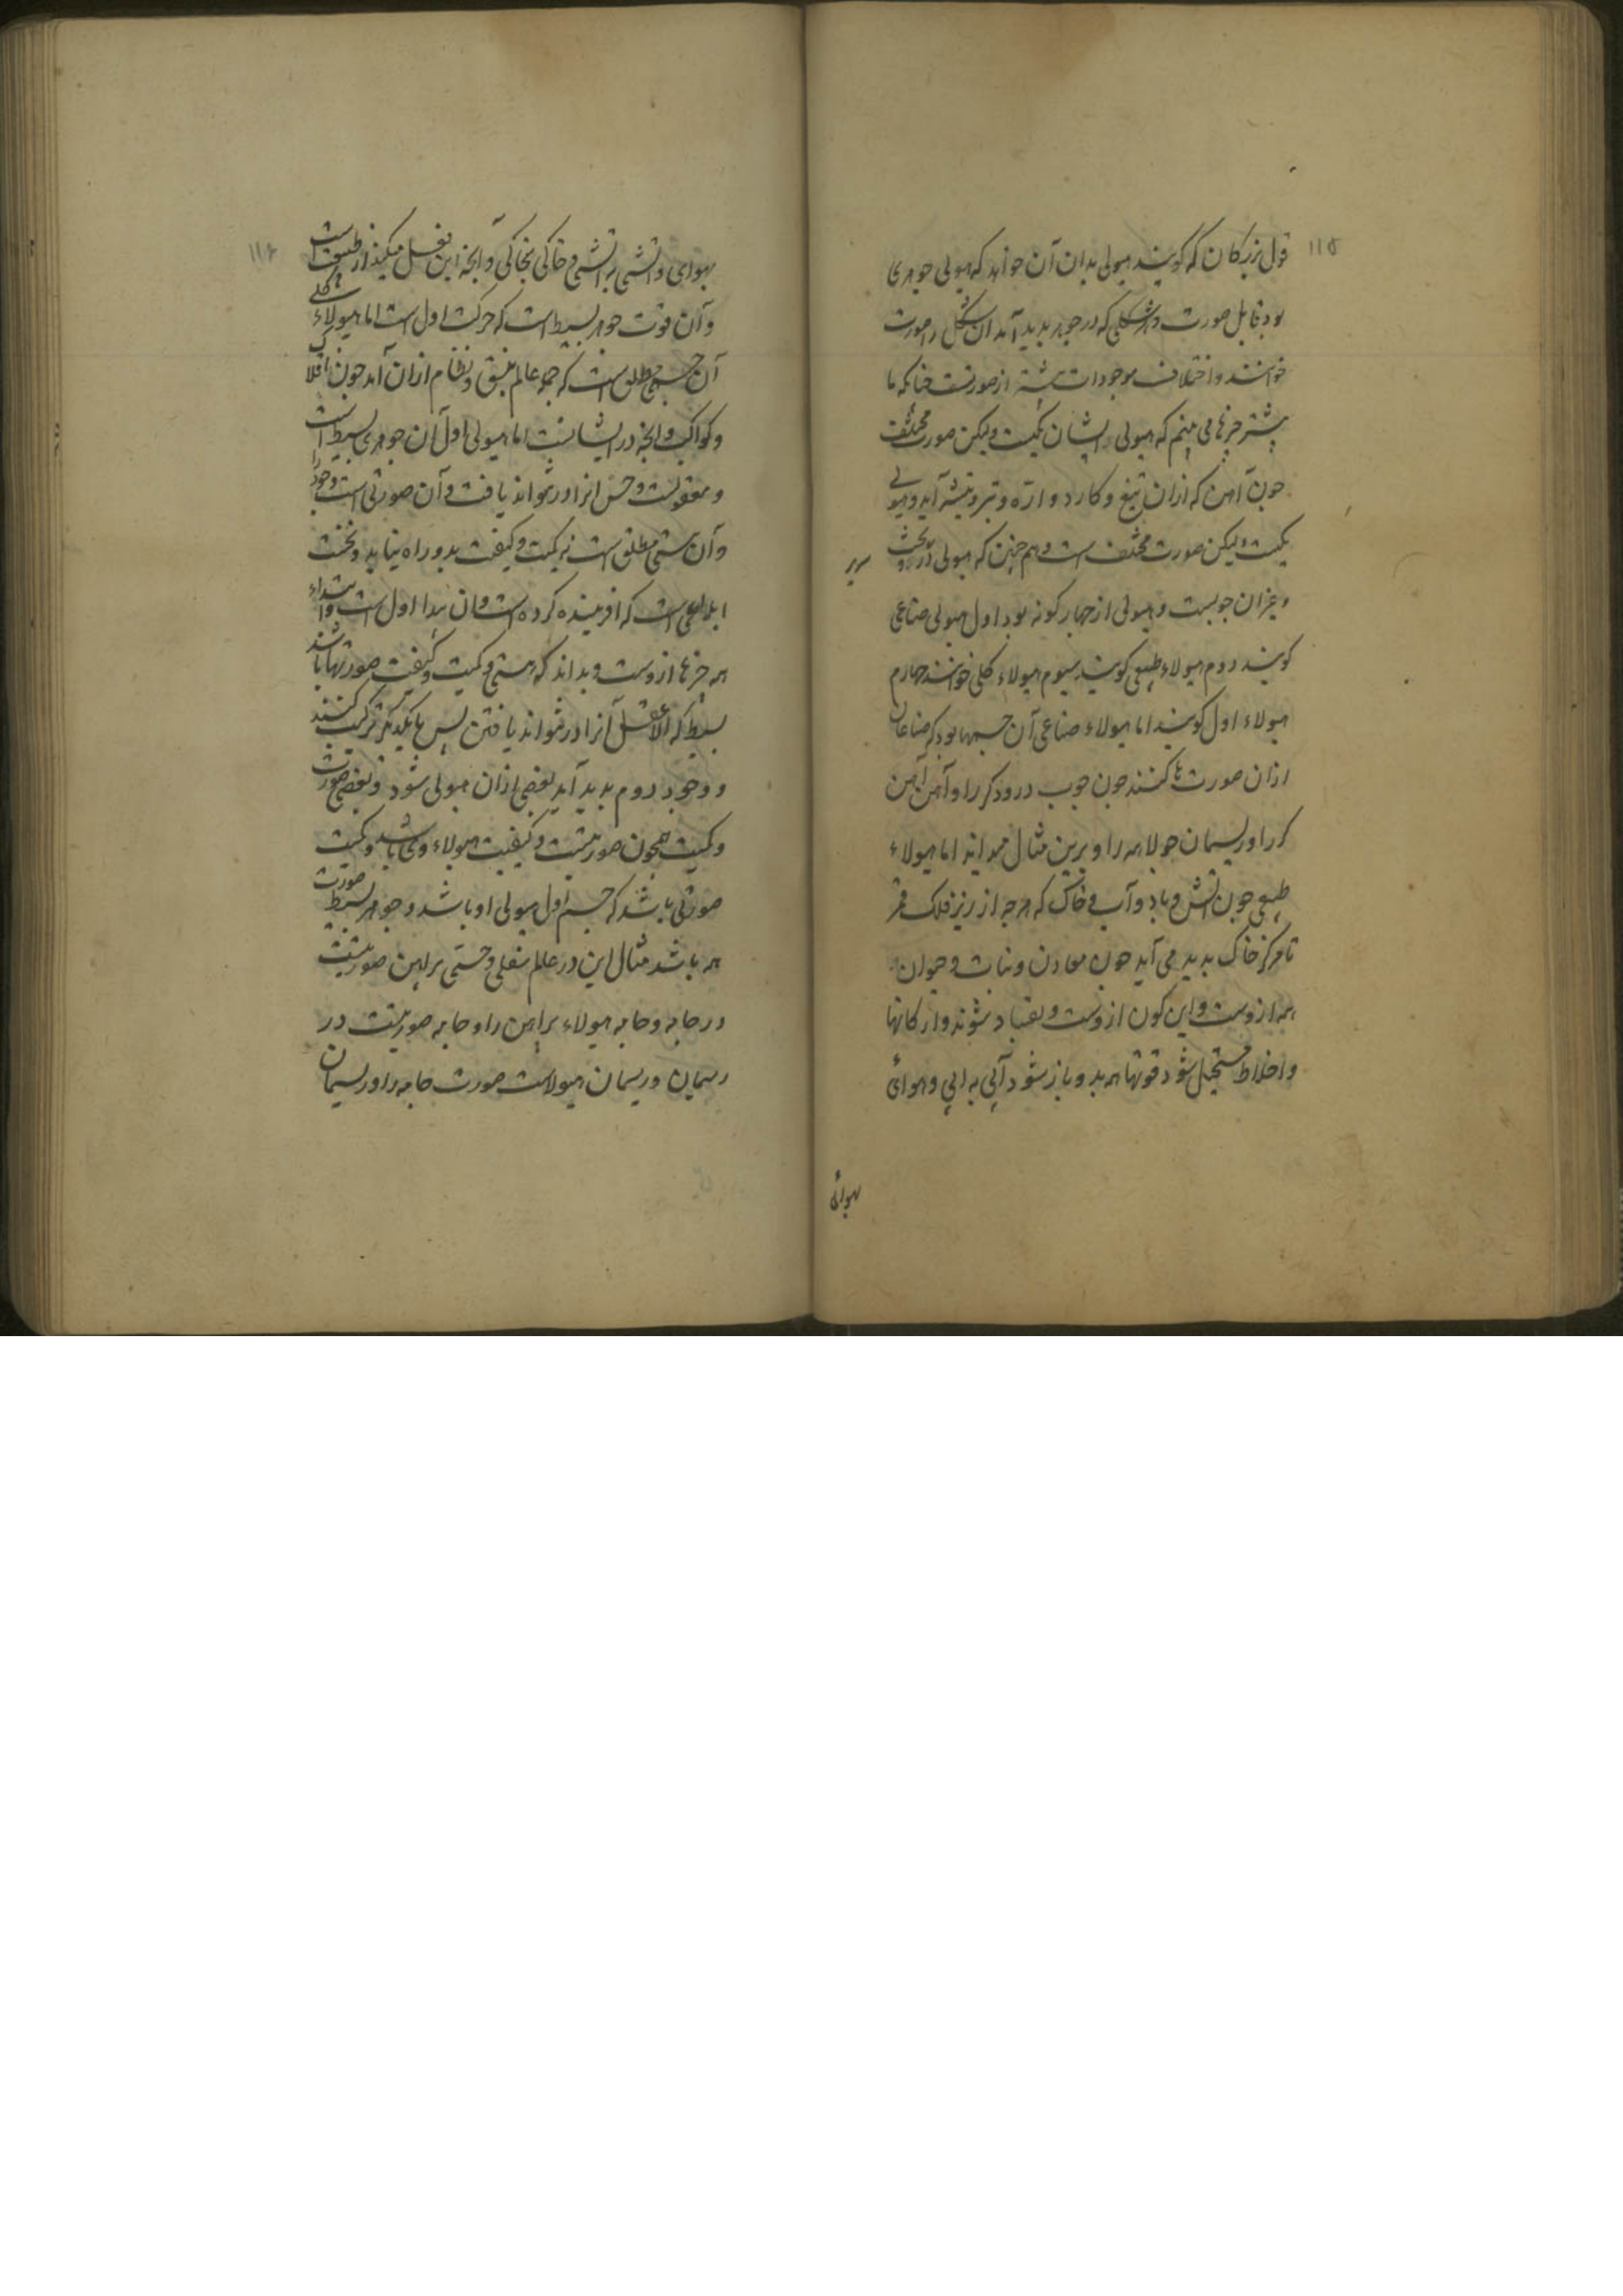 ۱۱۵
قول بزرکان که کویند هیولی بدان آن خواهد که هیولی جوهری
بود قابل صورت و هر شکلی که در جوهر بدید آمد آن شکل را صورت
خوانند و اختلاف موجودات بیشتر از صورتست جنانکه ما
بیشتر جیزها می بینم که هیولی ایشان یکیست ولیکن صورت مختلف
جون آهن که ازان تیغ و کارد و اره و تبر و تیشه آید و هیولی
یکیست ولیکن صورت مختلف است و هم جنین که هیولی در و تخت
سریر
و غیر آن جوبست و هیولی از جهار کونه بود اول هیولی صناعی
کویند دوم هیولاء طبیعی کویند سیوم هیولاء کلی خوانند جهارم
هیولاء اول کویند اما هیولاء صناعی آن جسمها بود که صناعان
ازان صورت ها کنند جون جوب درودکر را و آهن آهن
کر را و ریسمان جولاهه را و برین مثال میدانند اما هیولاء
طبیعی جون آتش و باد و آب و خاک که هرجه از زیر فلک قمر
تا مرکز خاک بدید می آید جون معادن و نبات و حیوان
همه ازوست و این کون ازوست و بفساد شوند و ارکانها
و اخلاط مستحیل شود قوتها همه بدو باز شود آبی به ابی و هوائی
هوائی
۱۱۶
بهوای و آتشی به آتشی و خاکی بخاکی و آنجه این فعل میکند از طبیعت است
و آن قوت جوهر بسیط است که حرکت اول است اما هیولاء کلی
آن جسم مطلق است که جمله عالم بنسق و نظام ازان آمد جون افلاک
و کواکب و آنجه در ایشانست اما هیولی اول آن جوهری بسیط است
و معقولست و حس انرا در نتواند یافت و آن صورتی است وجود را
و آن هستی مطلق است نه کمیت و کیفیت بدو راه نیابد و نخست
ابداعی است که افریننده کرده است و آن مبدا اول است و ابتداء
همه جیزها ازوست و بداند که هستی و کمیت و کیفیت صورتها باشند
بسیط که الا عقل آنرا در نتواند یافتن بس با یکدیکر ترکیب کنند
و وجود دوم بدید آید بعضی ازان هیولی شود و بعضی صورت
و کمیت همجون صورتیست و کیفیت هیولاء وی باشد و کمیت
صورتی باشد که جسم اول هیولی او باشد و جوهر بسیط صورت
همه باشد مثال این در عالم سفلی و حسی براهن صورتیست
در جامه و جامه هیولاء براهن را و جامه صورتیست در
ریسمان و ریسمان هیولاست صورت جامه را و ریسمان